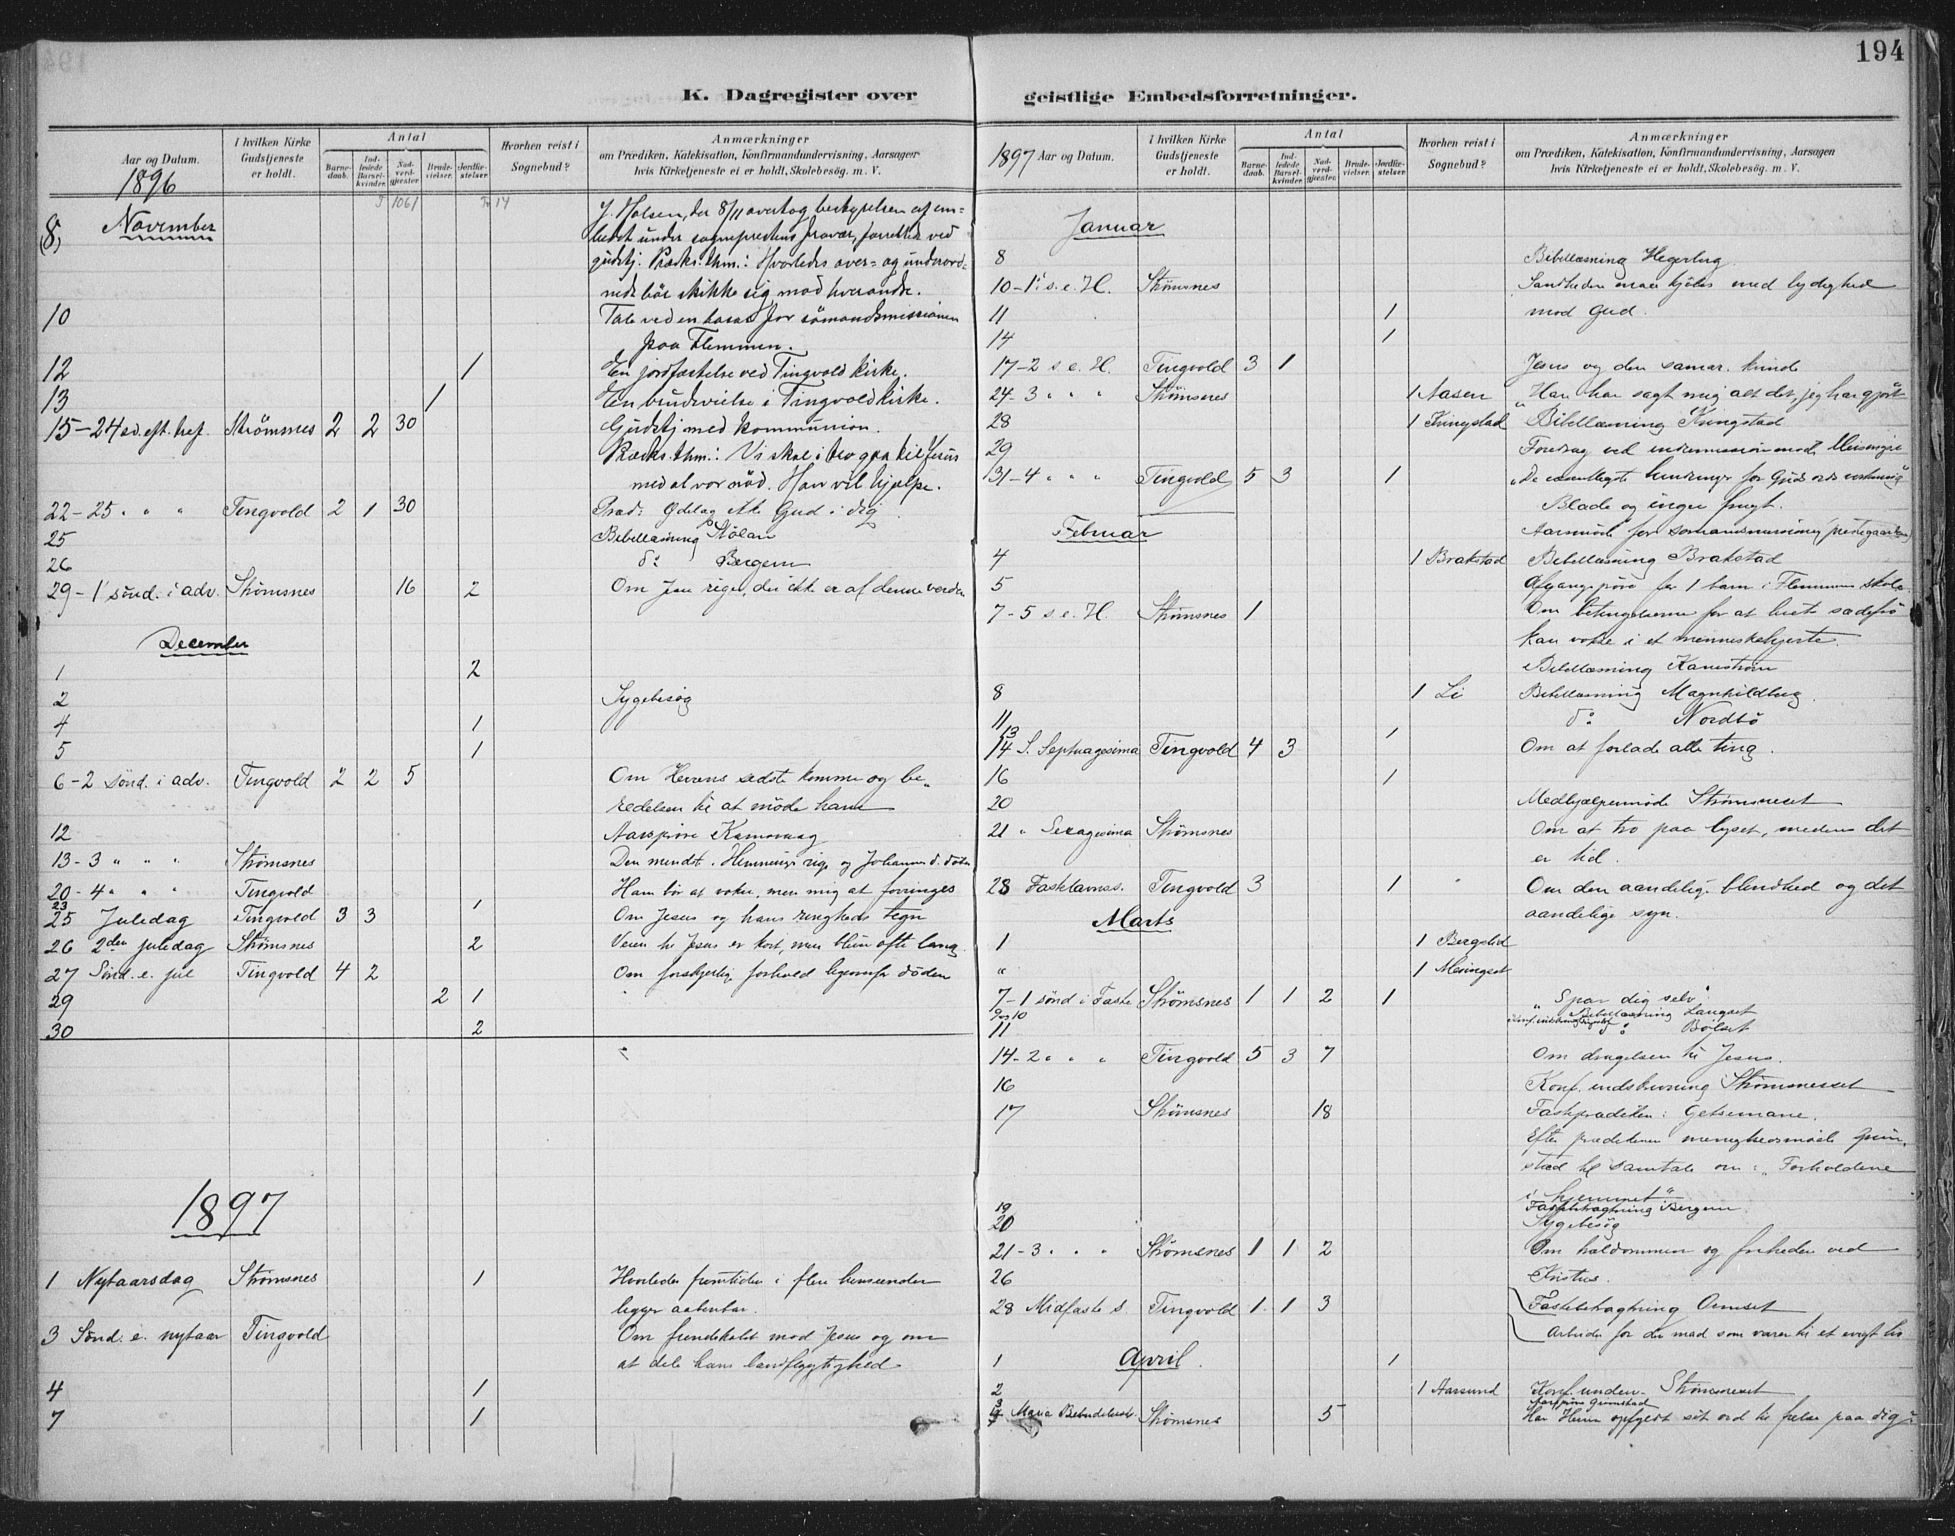 194
K. Dagregister over
geistlige Embedsforretninger.
Aar og Datum. 1896
I hvilken Kirke Gudstjeneste er holdt.
Antal
Barnedaab.
Indledede Barselkvinder.
Nadverdgjester.
Brudevielser.
Jordfæstelser.
Hvorhen reist i Sognebud?
Anmærkninger
om Prædiken, Katekisation, Konfirmandundervisning, Aarsagen hvis Kirketjeneste ei er holdt, Skolebesøg. m. V.
1061 14
(8) November J. Holsen, der 8/11 overtog bestyrelsen af em=
bedet under sogneprestens fravær, forrettede ved
gudstj. Præks. thm.: Hvorledes over= og underord=
nede bör skikke sig mod hverandre.
10 Tale ved en basar for sömandsmissionen
paa Flemmen.
12 1 En jordfæstelse ved Tingvold kirke.
13 1 En brudevielse i Tingvold kirke.
15-24 sö. eft. tref. Strømsnes 2 2 30 Gudstj med kommunion.
Præks. thm.: Vi skal i tro gaa til Jesus
med al vor nöd. Han vil hjælpe.
22-25 " " Tingvold 2 1 30 Præd: Ødelæg ikke Gud i dig
25 Bibellæsning Stölan
26 do Bergem
29-1 sönd. i adv. Strömsnes 16 2 Om Jesu rige, der ikke er af denne verden
December
1 2
2 Sygebesøg
4 1
5 1
6-2 sönd. i adv. Tingvold 2 2 5 Om Herrens sidste komme og be-
redelsen til at möde ham
12 Aarspröve Kamsvaag
13-3 " " " Strömsnes Den mindste i Himmeriges rige og Johannes d. döber
20-4 " " " Tingvold Ham bör at vokse, men mig at forringes
23 1
25 Juledag Tingvold 3 3 Om Jesus og hans ringheds tegn
26 2den juledag Strömsnes 2 Veien til Jesus er kort, men bliver ofte lang
27 Sönd. e. jul Tingvold 4 2 Om forskjellig forhold ligeoverfor döden
29 2 1
30 2
1897
1 Nytaarsdag Strömsnes 1 Hvorledes fremtiden i flere henseender
ligger aabenbar.
3 Sönd. e. nytaar Tingvold Om fiendskabet mod Jesus og om
at dele hans landflygtighed
4 1
7 1
1897 Aar og Datum.
I hvilken Kirke Gudstjeneste er holdt.
Antal
Barnedaab.
Indledede Barselkvinder.
Nadverdgjester.
Brudevielser.
Jordfæstelser.
Hvorhen reist i Sognebud?
Anmærkninger
om Prædiken, Katekisation, Konfirmandundervisning, Aarsagen hvis Kirketjeneste ei er holdt, Skolebesøg. m. V.
Januar
8 Bibellæsning Hegerberg
10-1 s. e. H. Strömsnes Sandheden maa kjöbes med lydighed
11 1 mod Gud.
14 1
17-2 s. e. H. Tingvold 3 1 Jesus og den samar. kvinde
24-3 " " Strömsnes 1 Aasen "Han har sagt mig alt det, jeg har gjort
28 1 Kringstad Bibellæsning Kringstad
29 Foredrag ved
31-4 " " Tingvold 5 3 1 "De væsentligste hindringer for Guds ords
Blade og ingen frugt.
Februar Aarsmöde for sömandsmissionen (prestegaarden)
4 1 Brakstad Bibellæsning Brakstad
5 Afgangspröve for 1 barn i Flemmen skole
7-5 s. e. H. Strömsnes 1 Om betingelserne for at livets sædefrö
kan vokse i et menneskehjerte.
Bibellæsning Kanestrøm
8 1 Li Bibellæsning Magnhildberg
11 do Nordbö
13 1
14 S. Septuagesima Tingvold 4 3 Om at forlade alle ting.
16 1
20 Medhjælpermöde Strømsneset
21 " Sexagesima Strömsnes Om at tro paa lyset, medens det
er tid.
28 Fastelavnss. Tingvold 3 1 Om den aandelige blindhed og det
aandelige syn.
Marts
1 1 Bergslid
" 1 Meisingset
7-1 sönd i Faste Strömsnes 1 1 2 1 "Spar dig selv".
9 og 10 Bibellæsning Langset
11 do Bölset
14-2 " " " Tingvold 5 3 7 Om dragelsen til Jesus.
16 Konf. indskrivning Strømsneset
17 Strömsnes 18 Fasteprædiken: Getsemane.
Efter prædikenen menighedsmöde Grim-
stad til samtale om: "Forholdene
i hjemmet"
19 Fastebetragtning Bergem
20 Sygebesög
21-3 " " " Strömsnes 1 1 2 Om trældommen og friheden ved
26 Kristus.
28 Midfaste s. Tingvold 1 1 3 Fastebetragtning Ormset
Arbeider for den mad som varer til et evigt liv
1 April 1
2 1 Aarsund Konf. underv. Strømsneset
3 Aarspröve Grimstad
4 Maria Bebudelsesd. Strömsnes 5 Har Herren opfyldt sit ord til frelse paa dig?